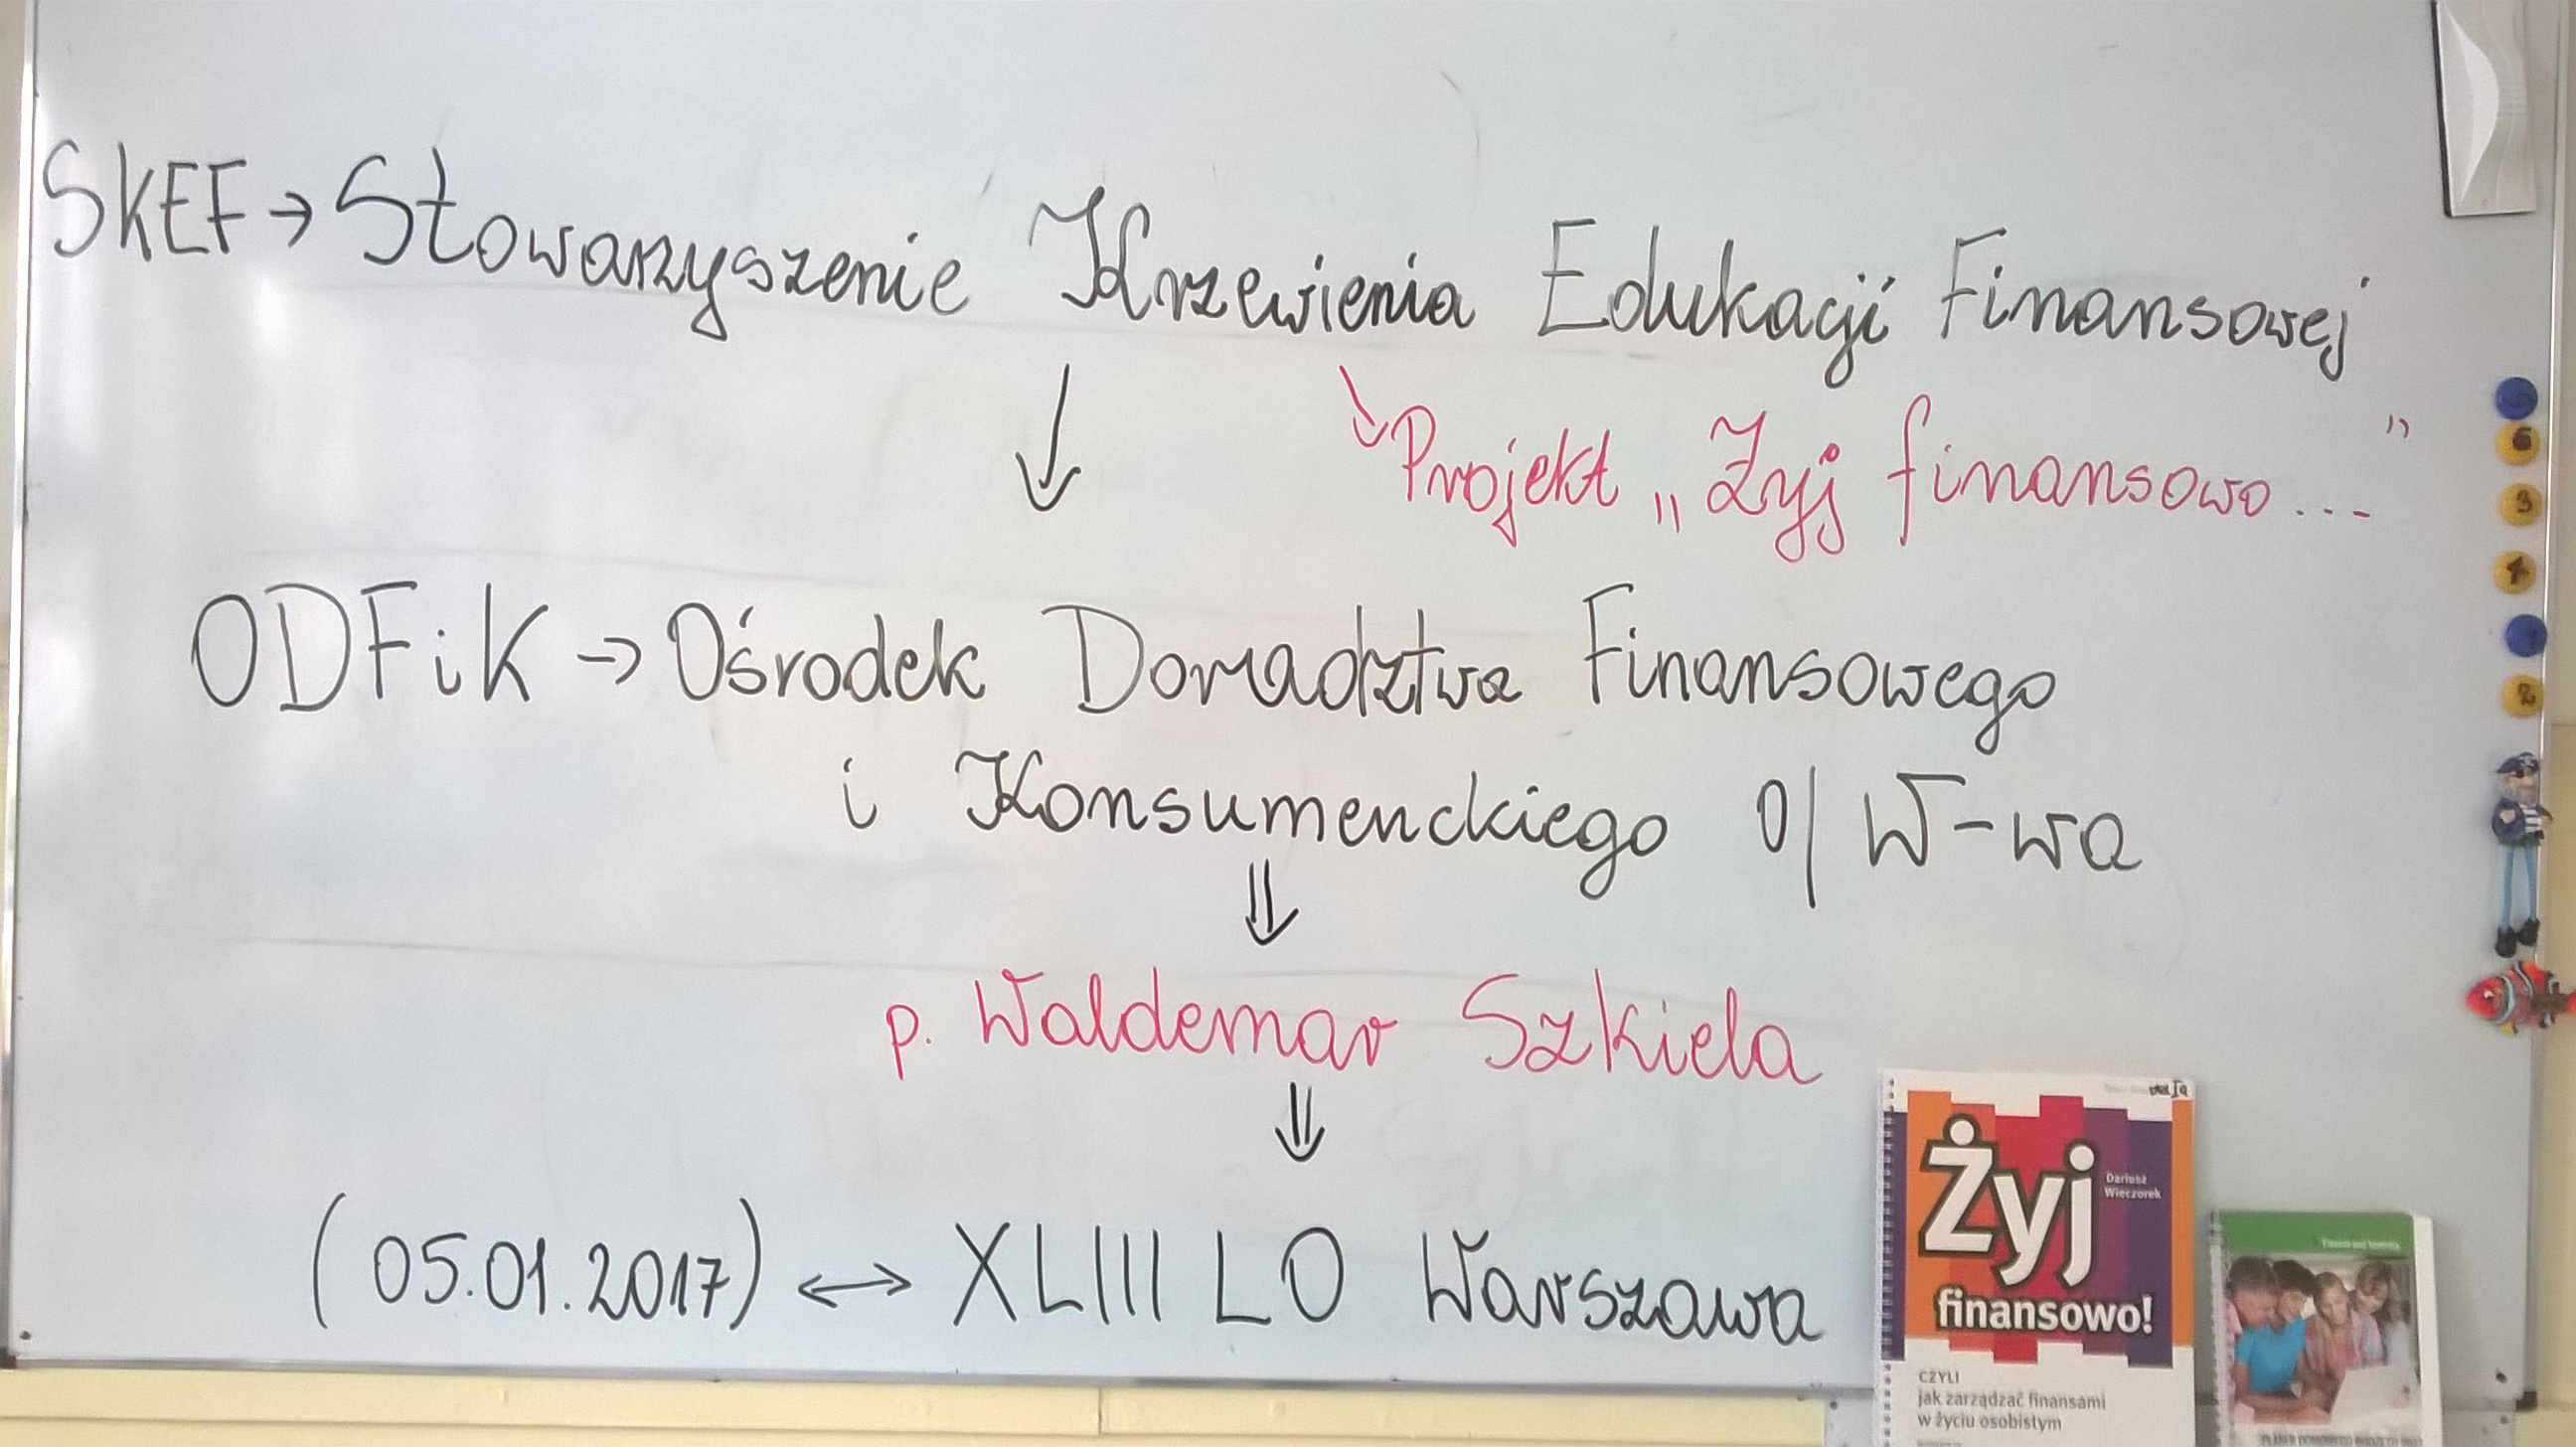 SKEF → Stowarzyszenie Krzewienia Edukacji Finansowej
Projekt „Żyj finansowo..."
ODFiK → Ośrodek Doradztwa Finansowego
i Konsumenckiego O/ W-wa
p. Waldemar Szkiela
(05.01.2017) ↔ XLIII LO Warszawa
6
3
4
2
Żyj
Dariusz
Wieczorek
finansowo!
CZYLI
jak zarządzać finansami
w życiu osobistym